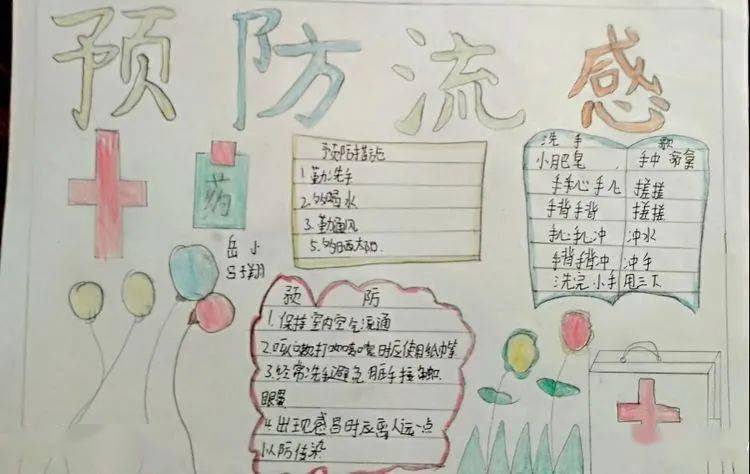 预防流感
药
岳小
吕翔
预防措施
1.勤洗手
2.多喝水
3.勤通风
5.多晒太阳.
洗手歌
小肥皂,手中拿
手心手儿 搓搓
手背手背 搓搓
手心手心冲 冲水
手背手背冲 冲手
洗完小手 甩三下
预防
1.保持室内空气流通
2.咳嗽打喷嚏时应使用纸巾等
3.经常洗手避免用脏手接触
眼鼻
4.出现感冒时应离人远一点
以防传染